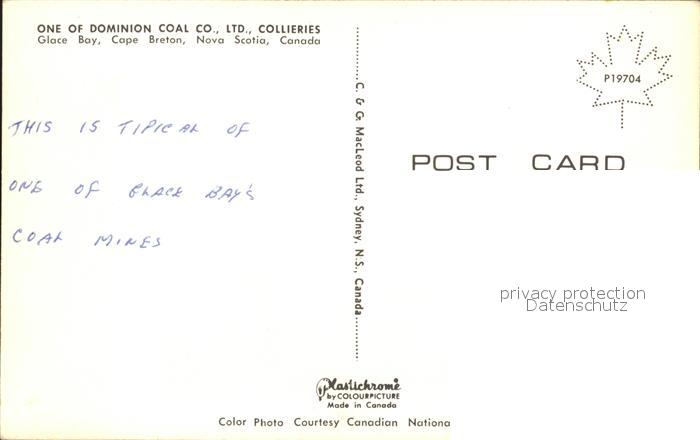 ONE OF DOMINION COAL CO., LTD., COLLIERIES
Glace Bay, Cape Breton, Nova Scotia, Canada
THIS IS TIPICAL OF
ONE OF GLACE BAY'S
COAL MINES
C. & G. MacLeod Ltd., Sydney, N.S., Canada
P19704
POST CARD
privacy protection
Datenschutz
Plastichrome
by COLOURPICTURE
Made in Canada
Color Photo Courtesy Canadian Nationa